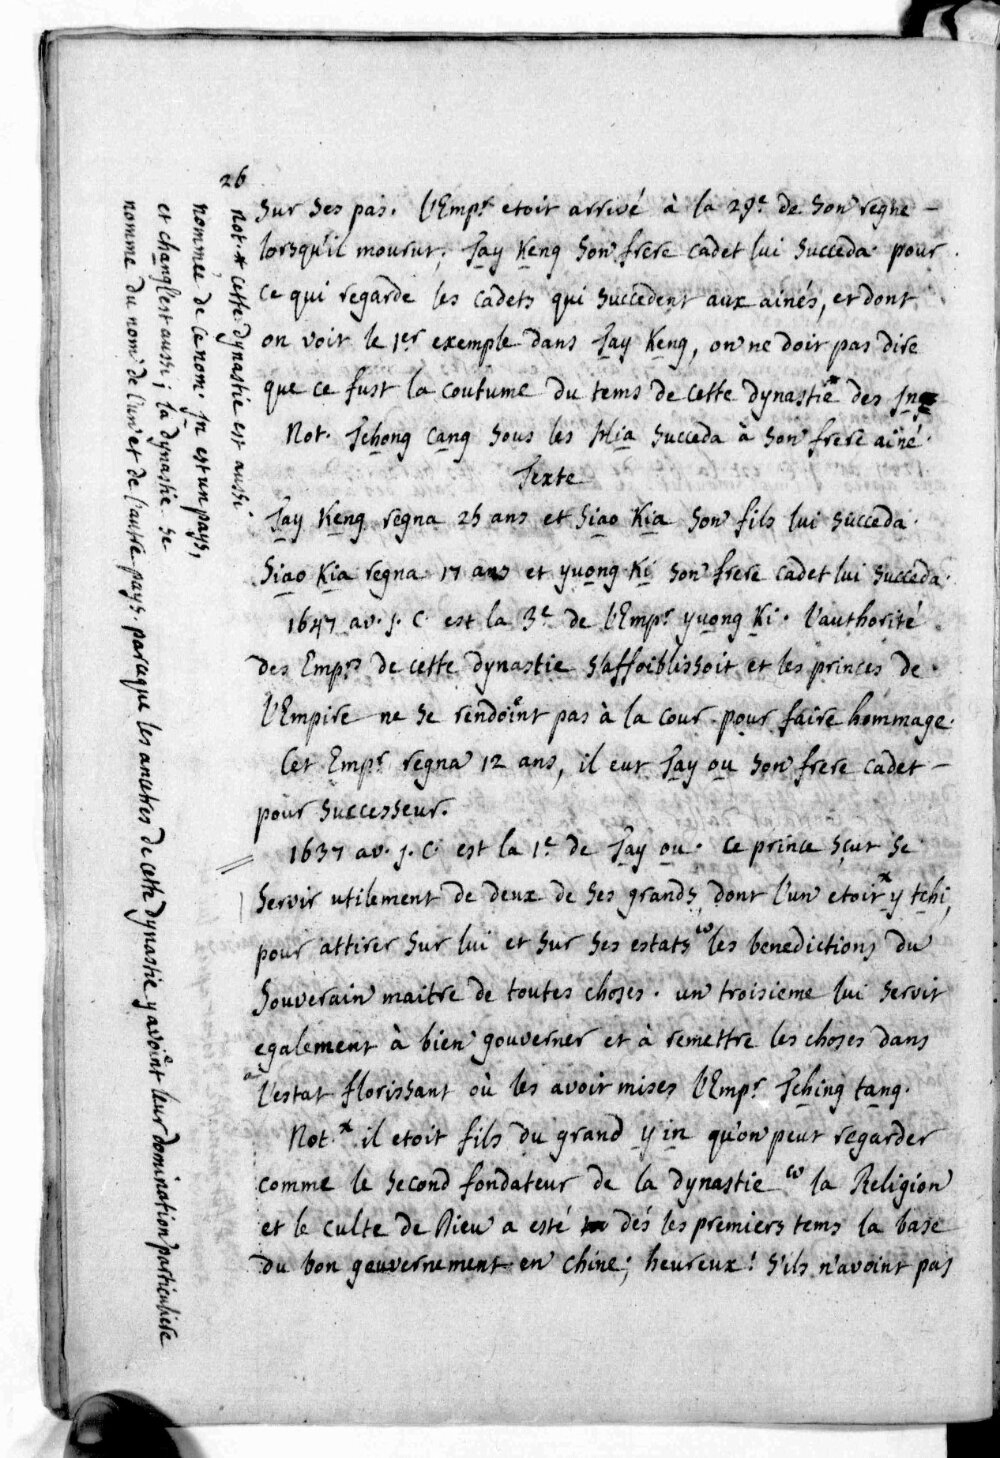 26
sur ses pas. l'Emp.r etoit arrivé à la 29.e de son regne –
lorsqu'il mourut. Tay Keng son frere cadet lui succeda. pour
ce qui regarde les cadets qui succedent aux ainés, et dont
on voit le 1.er exemple dans Tay Keng, on ne doit pas dire
que ce fust la coutume du tems de cette dynastie* des Jn
Not. Tchong Cang sous les Hia succeda à son frere ainé.
Texte
Tay Keng regna 25 ans et Siao Kia son fils lui succeda.
Siao Kia regna 17 ans et yuong Ki son frere cadet lui succeda.
1647 av. J. C. est la 3.e de l'Emp.r yuong Ki. l'authorité
des Emp.rs de cette dynastie s'affoiblissoit et les princes de
l'Empire ne se rendoient pas à la cour pour faire hommage.
Cet Emp.r regna 12 ans, il eut Tay ou son frere cadet –
pour successeur.
1637 av. J. C. est la 1.e de Tay ou. Ce prince sçut se
servir utilement de deux de ses grands, dont l'un etoit* y tchi,
pour attirer sur lui et sur ses estats les benedictions du
Souverain maitre de toutes choses. un troisieme lui servit
egalement à bien gouverner et à remettre les choses dans
l'estat florissant où les avoit mises l'Emp.r Tching tang.
Not.* il etoit fils du grand y in qu'on peut regarder
comme le second fondateur de la dynastie la Religion
et le culte de Dieu a esté dés les premiers tems la base
du bon gouvernement en Chine; heureux! s'ils n'avoint pas
Not.* cette dynastie est aussi
nommée de ce nom. Jn est un pays,
et chang l'est aussi; la dynastie se
nomme du nom de l'un et de l'autre pays. parceque les ancetres de cette dynastie y avoient leur domination particuliere